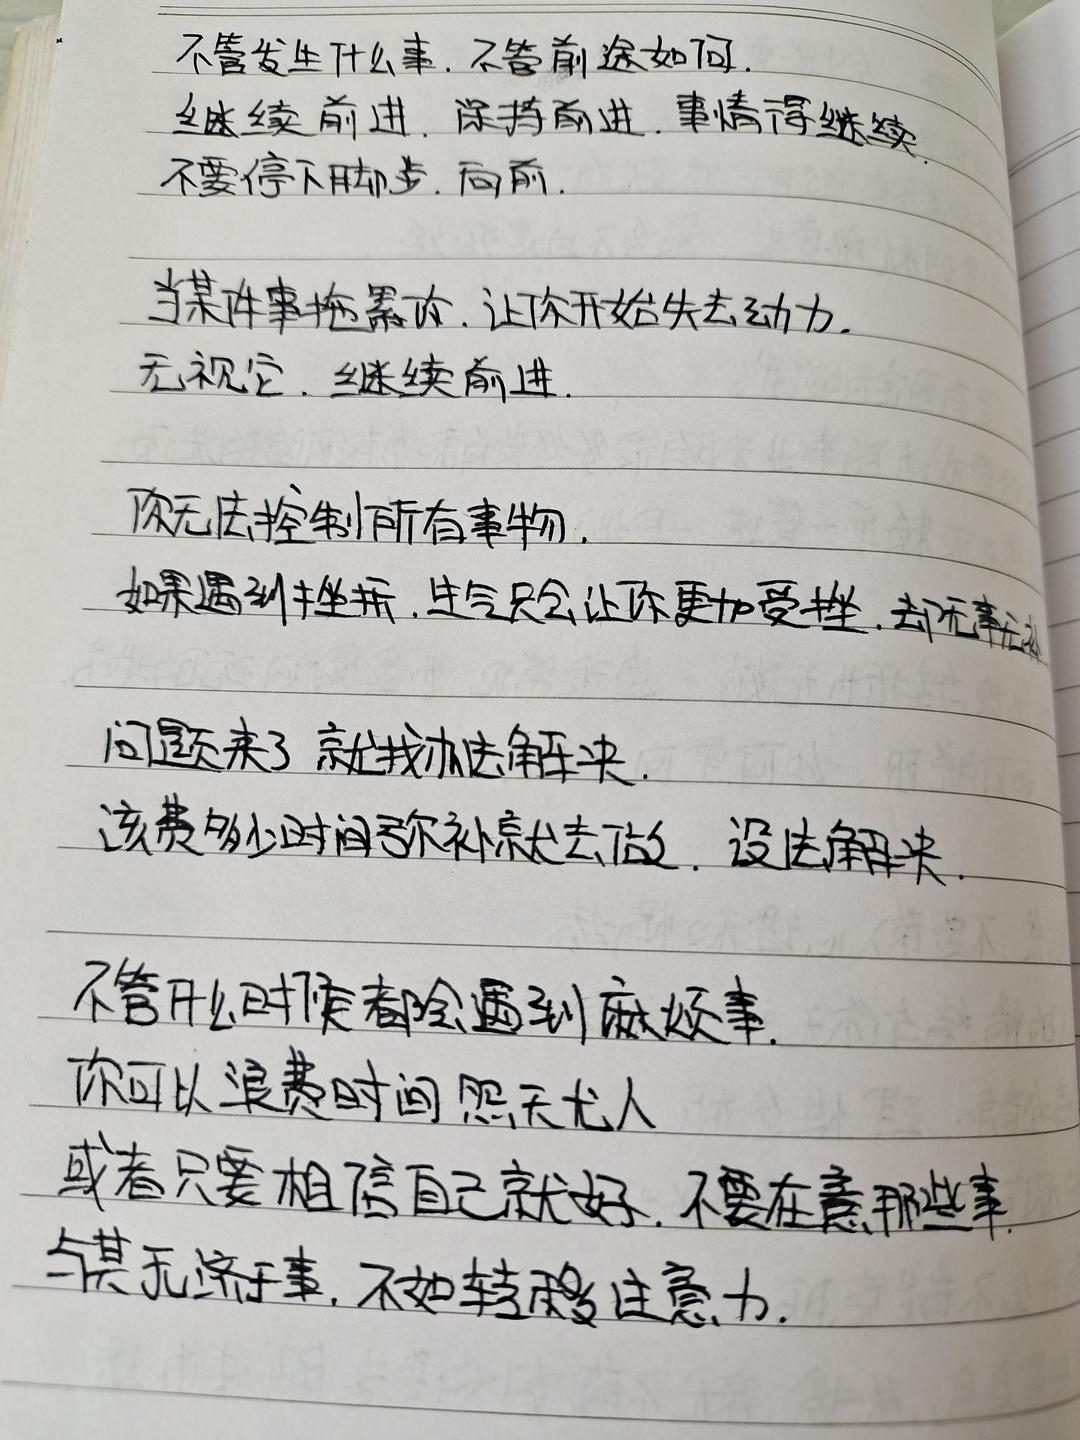 不管发生什么事.不管前途如何.
继续前进.保持前进.事情得继续.
不要停下脚步.向前.
当某件事拖累你.让你开始失去动力.
无视它.继续前进.
你无法控制所有事物.
如果遇到挫折.生气只会让你更加受挫.却无事无补
问题来了就找办法解决.
该费多少时间弥补就去做.设法解决.
不管什么时候都会遇到麻烦事.
你可以浪费时间怨天尤人
或者只要相信自己就好.不要在意那些事.
与其无济于事.不如转移注意力.